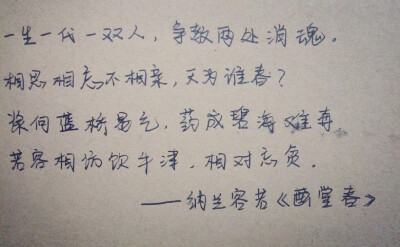 一生一代一双人，争教两处消魂。
相思相忘不相亲，天为谁春？
浆向蓝桥易乞，药成碧海难奔
若容相访饮牛津，相对忘贫。
——纳兰容若《画堂春》